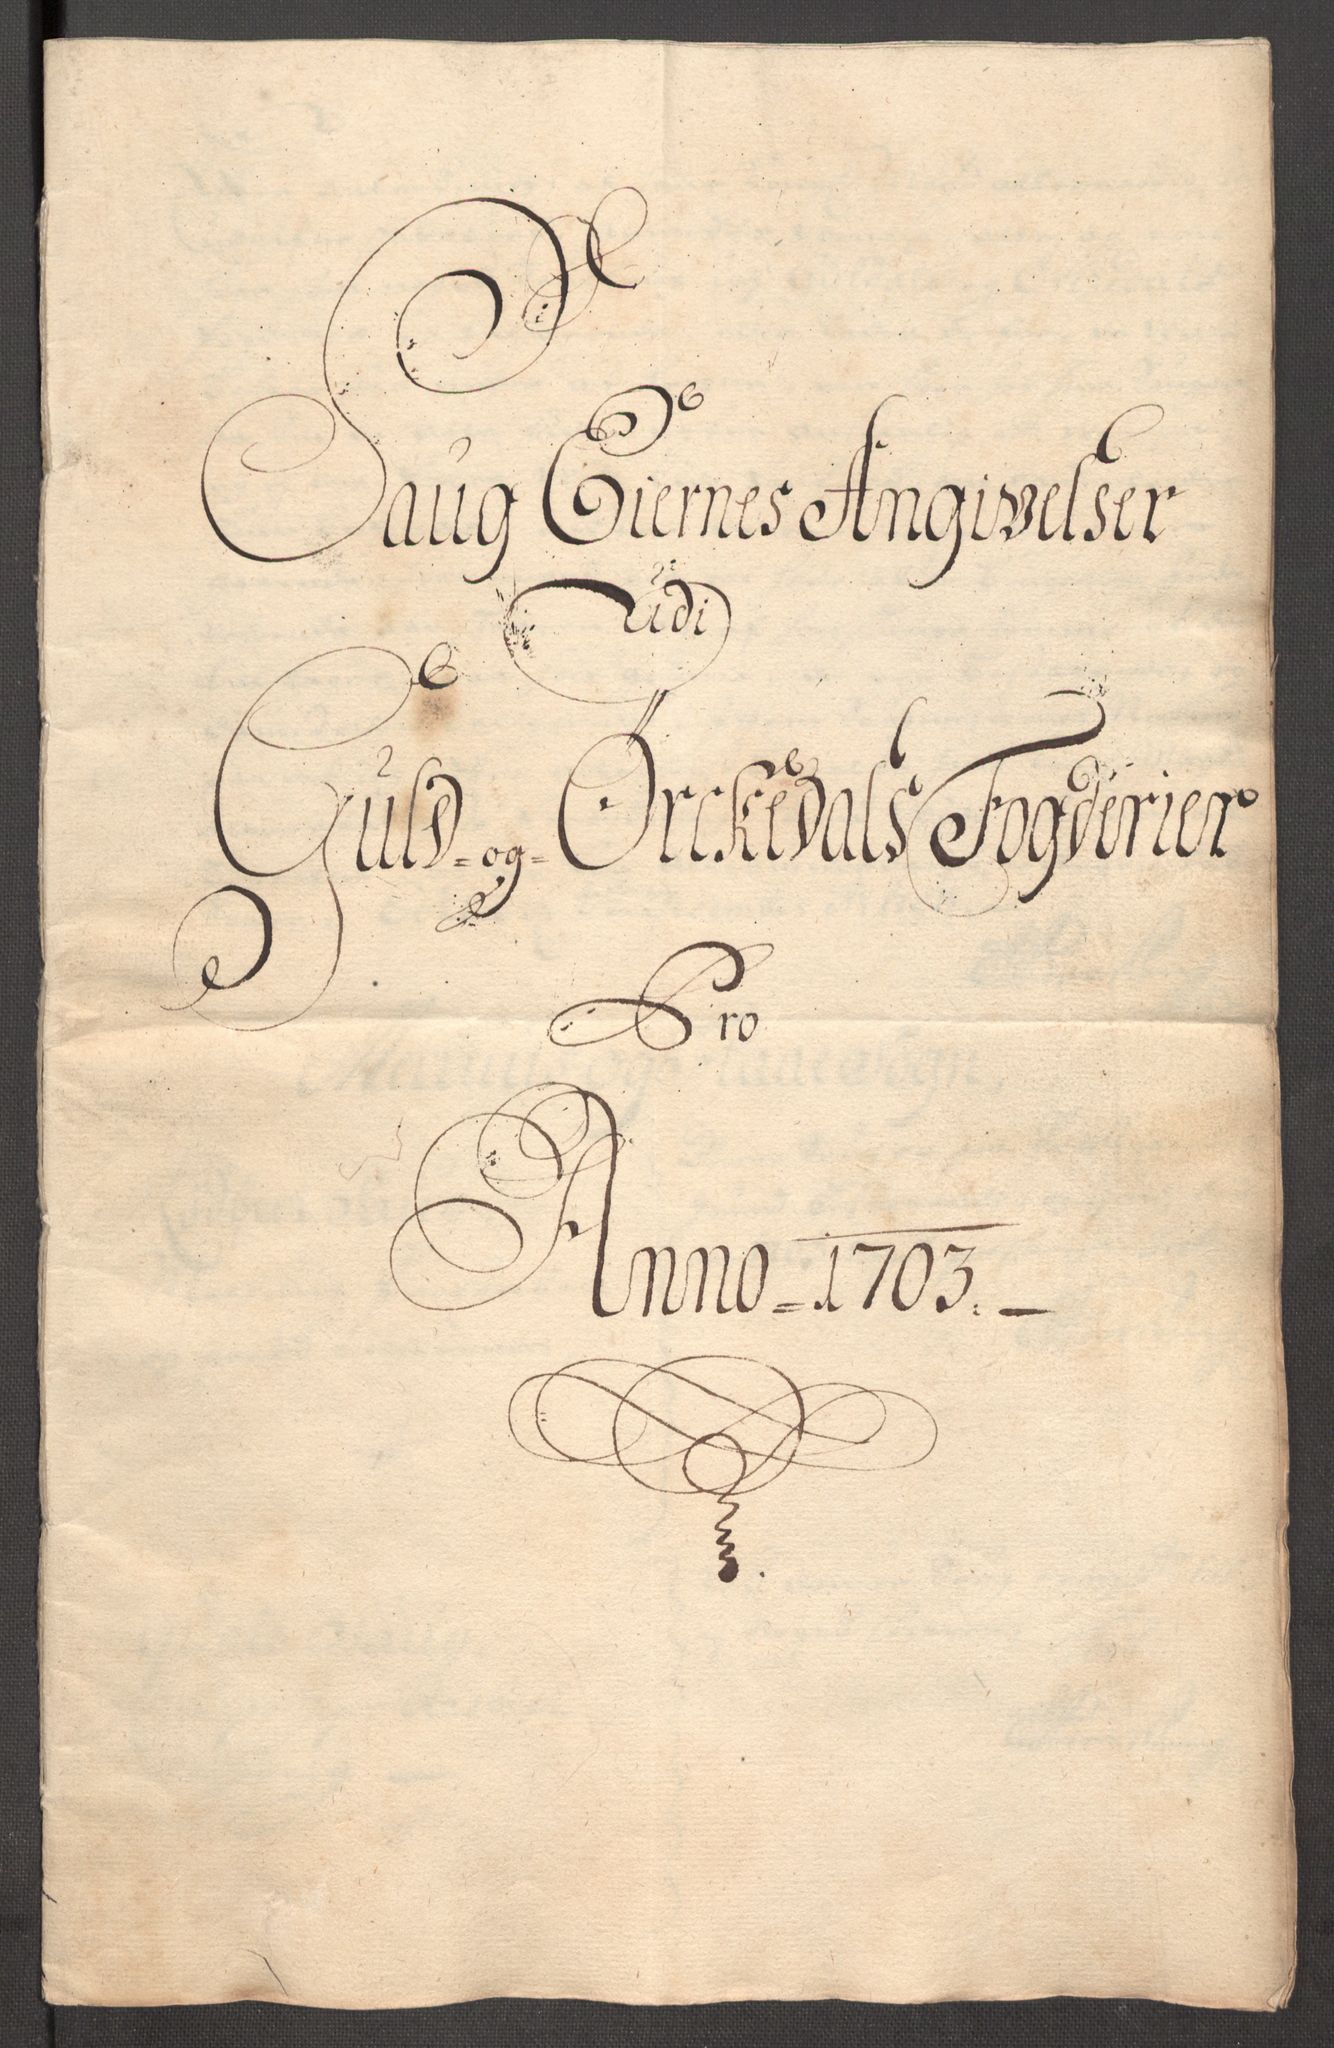 Saug Eiernes Angivelser
Udi
Guld=og=Orckedals Fogderier
Pro
Anno=1703.